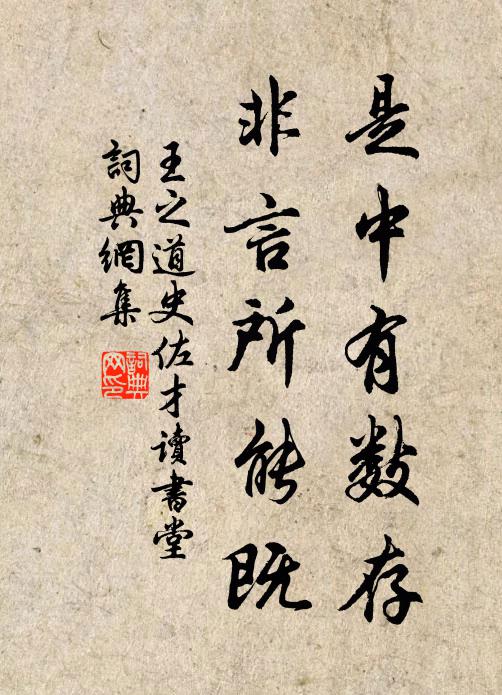 是中有数存
非言所能既
王之道史佐才讀書堂
詞典網集
詞典
网印